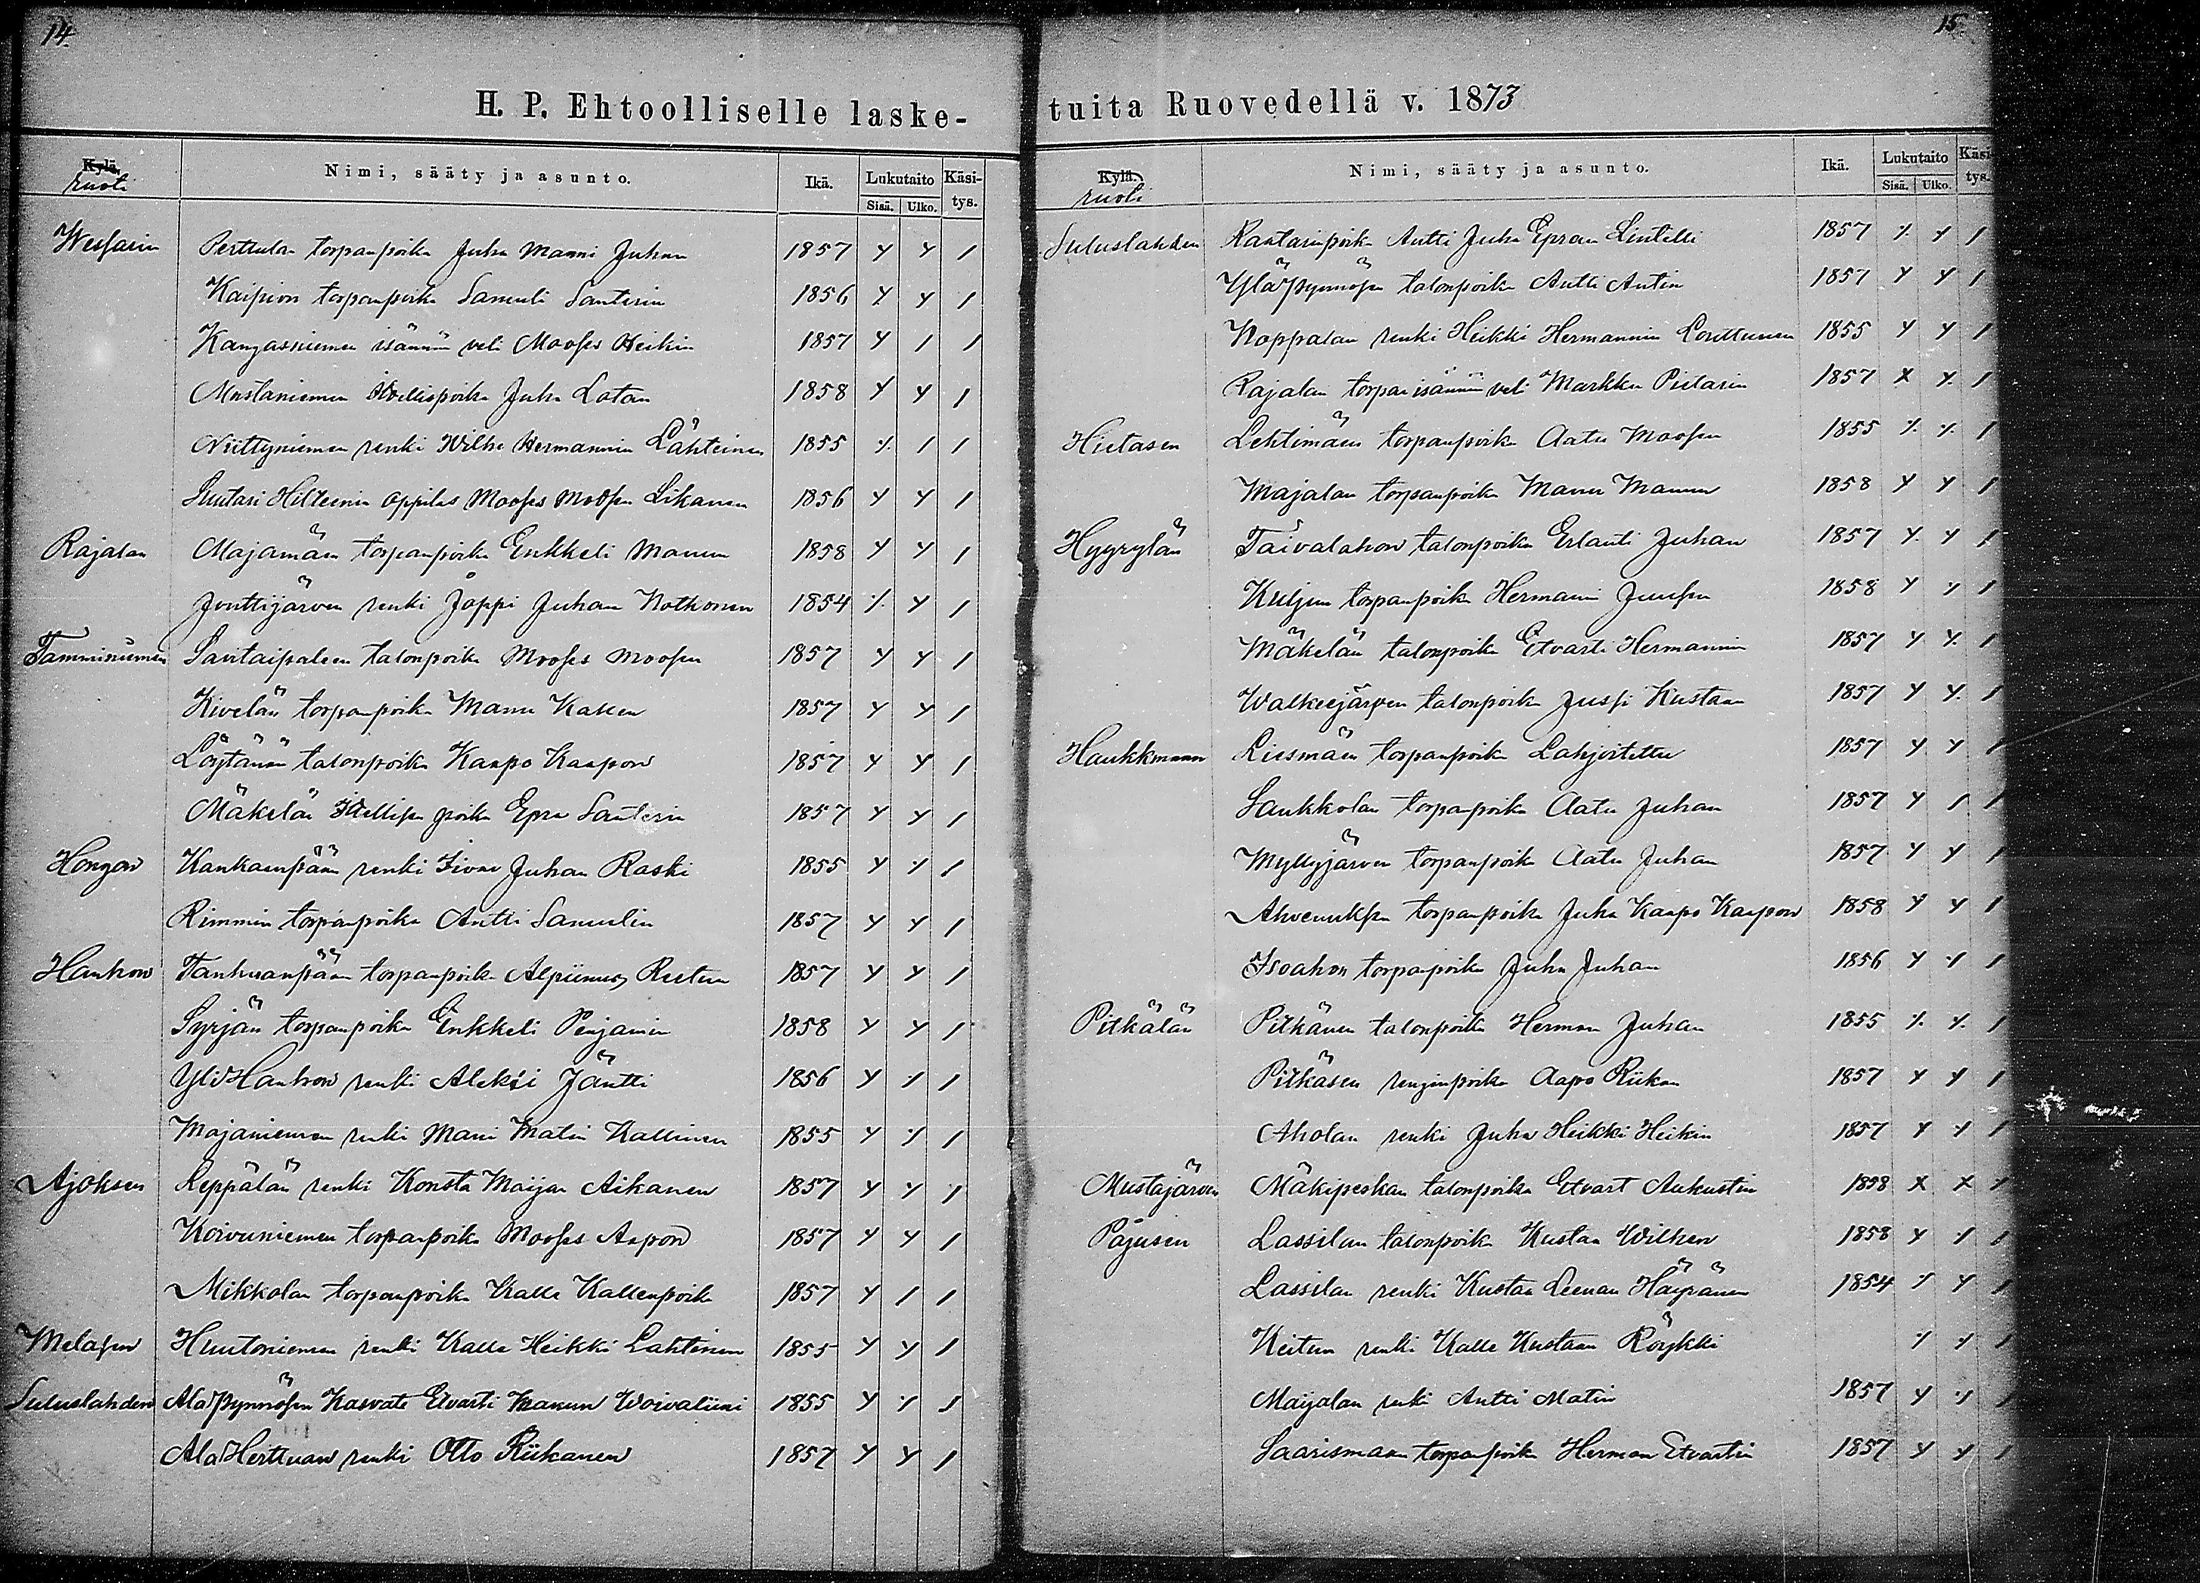 14.
H. P. Ehtoolliselle laske-
Kylä.
ruoti
Nimi, sääty ja asunto.
Ikä.
Lukutaito
Sisä. Ulko.
Käsi-
tys.
Perttulan torpanpoika Juha Manni Juhan 1857
Kaipion torpanpoika Samuli Santerin 1856
Kangasniemen isännän veli Mooses Heikin 1857
Mustaniemen itsellispoika Juha Latan 1858
Niittyniemen renki Wilho Hermannin Lähteinen 1855
Suutari oppilas Mooses Moosen Likanen 1856
Rajalan Majamäen torpanpoika Enkkeli Manun 1858
Jouttijärven renki Joppi Juhan Kotkonen 1854
Tamminiemen Santaipaleen talonpoika Mooses Moosen 1857
Kivelän torpanpoika Manu Kallen 1857
Löytänän talonpoika Kaapo Kaapon 1857
Mäkelän itsellisen poika Epra Santerin 1857
Hongon Kankaanpään renki Iivar Juhan Raski 1855
Rimmin torpanpoika Antti Samulin 1857
Hanhon Tanhuanpään torpanpoika Alpiinus Reetun 1857
Syrjän torpanpoika Enkkeli Penjamin 1858
Yli Hanhon renki Aleksi Jäntti 1856
Majaniemen renki Mani Matin Kallinen 1855
Ajoksen Reppälän renki Konsta Maijan Aikanen 1857
Koivuniemen torpanpoika Mooses Aapon 1857
Mikkolan torpanpoika Kalle Kallenpoika 1857
Melasen Huutoniemen renki Kalle Heikki Lahtinen 1855
Suluslahden Ala Pynnösen Kasvate Etvarti Manun Woivaliini 1855
Ala Herttuan renki Otto Riikanen 1857
15.
tuita Ruovedellä v. 1873
Kylä.
ruoti
Nimi, sääty ja asunto.
Ikä.
Lukutaito
Sisä. Ulko.
Käsi-
tys.
Suluslahden Rantarinpoika Antti Juha Epran Lintelli 1857
Ylä Pynnösen talonpoika Antti Antin 1857
Noppalan renki Heikki Hermannin Lonttunen 1855
Rajalan torpan isännän veli Markku Pietarin 1857
Hietasen Lehtimäen torpanpoika Aatu Moosen 1855
Majalan torpanpoika Manu Manun 1858
Hyyrylän Taivalahon talonpoika Erlanti Juhan 1857
Kuljun torpanpoika Hermanni Juusen 1858
Mäkelän talonpoika Etvarti Hermannin 1857
Walkeejärven talonpoika Jussi Kustaan 1857
Haukkamaan Liesmäen torpanpoika Lahjoitettu 1857
Saukkolan torpanpoika Aatu Juhan 1857
Myllyjärven torpanpoika Aatu Juhan 1857
Ahvenuksen torpanpoika Juha Kaapo Kaapon 1858
Isoahon torpanpoika Juha Juhan 1856
Pitkälän Pitkänen talonpoika Herman Juhan 1855
Pitkäsen renginpoika Aapo Riikan 1857
Aholan renki Juha Heikki Heikin 1857
Mustajärven Mäkipeskan talonpoika Etvart Aukustin 1858
Pajusen Lassilan talonpoika Kustaa Wilhen 1858
Lassilan renki Kustaa Leenan Häyränen 1854
Keitun renki Kalle Kustaan Röykki
Maijalan renki Antti Matin 1857
Saarismaan torpanpoika Herman Etvartin 1857